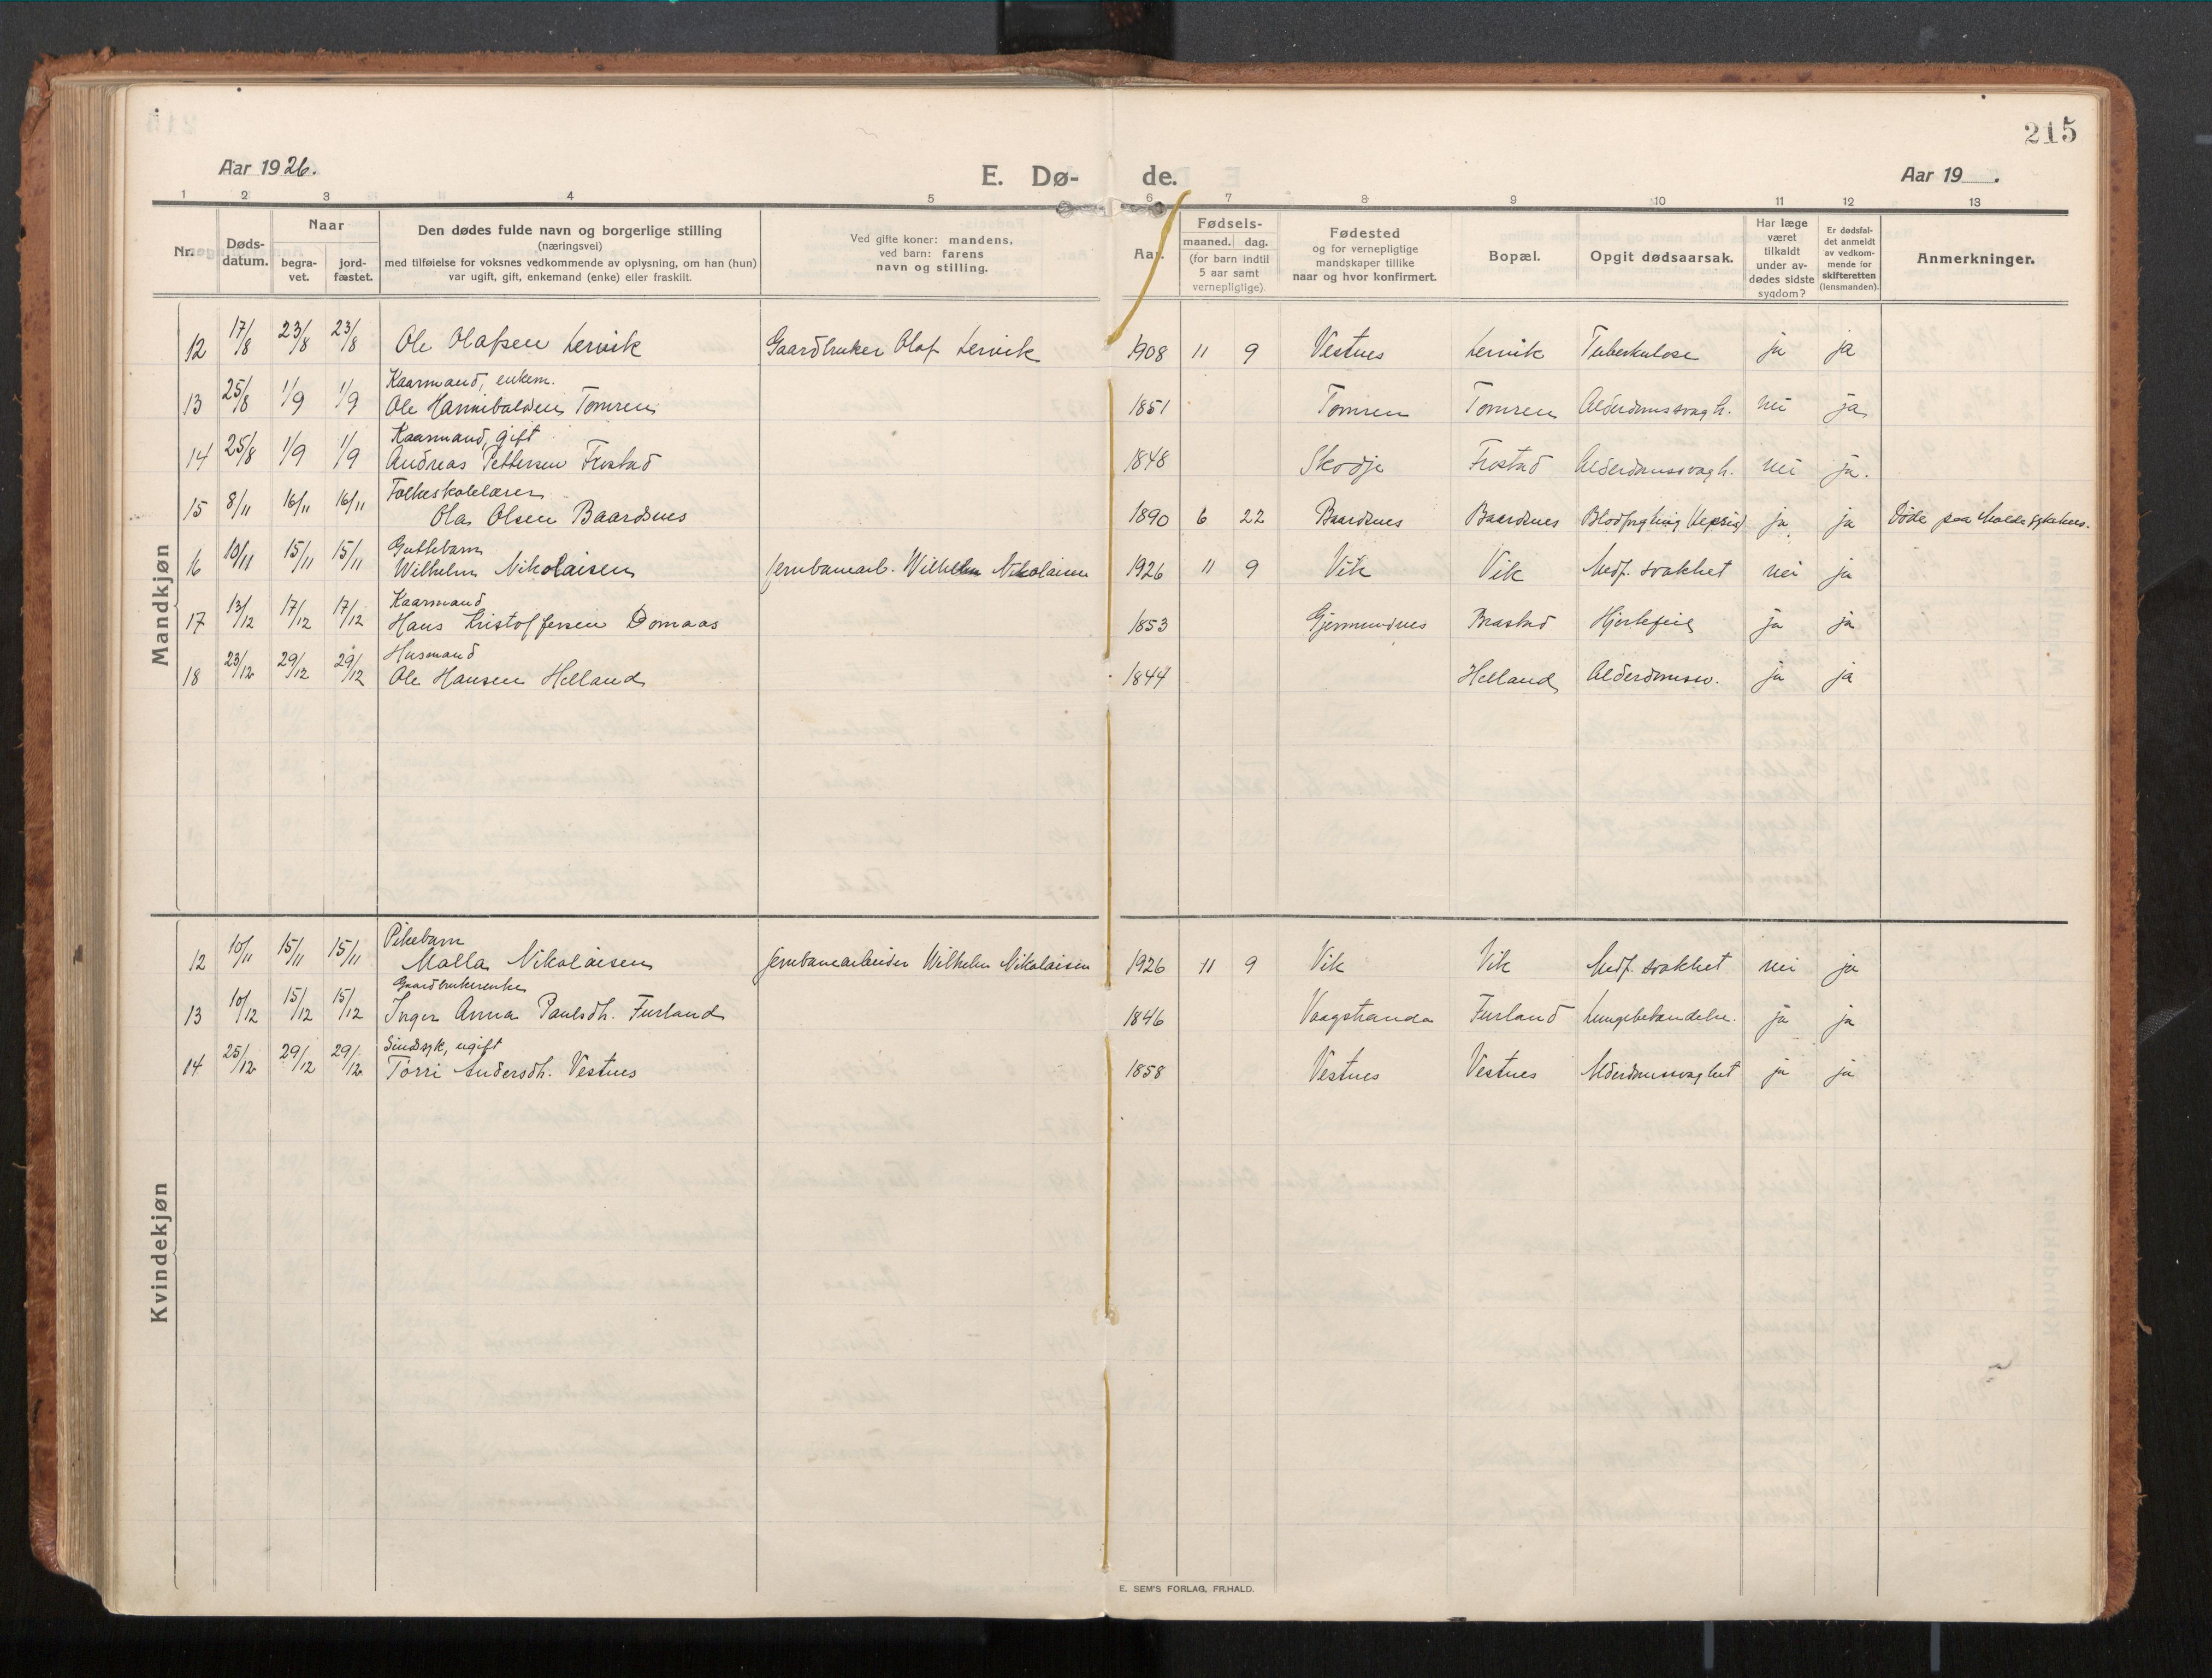 215
Aar 1926.
E. Dø- de.
Aar 19 .
1 2 3 4 5 6 7 8 9 10 11 12 13
Nr.
Døds-
datum.
Naar
begra-
vet.
jord-
fæstet.
Den dødes fulde navn og borgerlige stilling
(næringsvei)
med tilføielse for voksnes vedkommende av oplysning, om han (hun)
var ugift, gift, enkemand (enke) eller fraskilt.
Ved gifte koner: mandens,
ved barn: farens
navn og stilling.
Aar.
Fødsels-
maaned. dag.
(for barn indtil
5 aar samt
vernepligtige).
Fødested
og for vernepligtige
mandskaper tillike
naar og hvor konfirmert.
Bopæl.
Opgit dødsaarsak.
Har læge
været
tilkaldt
under av-
dødes sidste
sygdom?
Er dødsfal-
det anmeldt
av vedkom-
mende for
skifteretten
(lensmanden).
Anmerkninger.
Mandkjøn
12 17/8 23/8 23/8 Ole Olafsen Lervik Gaardbruker Olaf Lervik 1908 11 9 Vestnes Lervik Tuberkulose ja ja
Kaarmand, enkem.
13 25/8 1/9 1/9 Ole Hannibaldsen Tomren 1851 Tomren Tomren Alderdomssvagh. nei ja
Kaarmand, gift
14 25/8 1/9 1/9 Andreas Pettersen Frostad 1848 Skodje Frostad Alderdomssvagh. nei ja.
Folkeskolelærer
15 8/11 16/11 16/11 Ola Olsen Baardsnes 1890 6 22 Baardsnes Baardsnes Blodforgiftning (sepsis) ja ja Døde paa Molde sykehus.
Guttebarn
16 10/11 15/11 15/11 Wilhelm Nikolaisen Jernbanearb. Wilhelm Nikolaisen 1926 11 9 Vik Vik Medf. svakhet nei ja
Kaarmand
17 13/12 17/12 17/12 Hans Kristoffersen Domaas 1853 Gjermundnes Brastad Hjertefeil ja ja
Husmand
18 23/12 29/12 29/12 Ole Hansen Helland 1844 Helland Alderdomssv. ja ja
Kvindekjøn
Pikebarn
12 10/11 15/11 15/11 Malla Nikolaisen Jernbanearbeider Wilhelm Nikolaisen 1926 11 9 Vik Vik Medf. svakhet nei ja
Gaardbrukerenke
13 10/12 15/12 15/12 Inger Anna Paulsdh. Furland 1846 Vaagstranda Furland Lungebetændelse. ja ja
Sindssyk, ugift
14 25/12 29/12 29/12 Torri Andersdh. Vestnes 1858 Vestnes Vestnes Alderdomssvaghet ja ja
E. SEM'S FORLAG, FR.HALD.